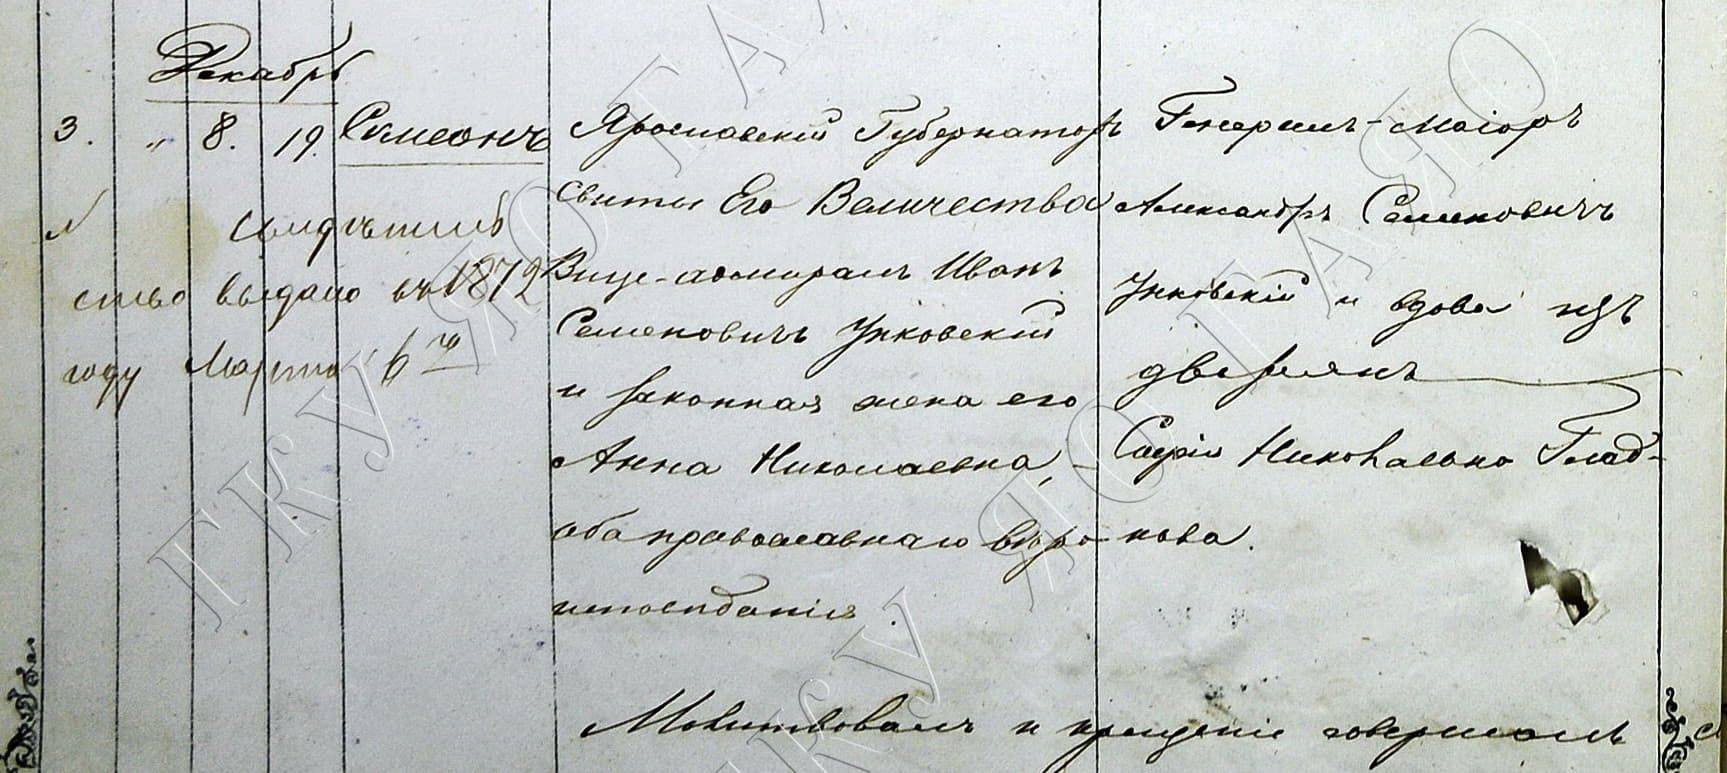 Декабрь
3. " 8. 19. Симеонъ
Свидѣтель
ство выдано въ 1872
году Марта 6 ч
Ярославскій Губернаторъ
Свиты Его Величества
Вице-адмиралъ Иванъ
Семеновичъ Унковскій
и законная жена его
Анна Николаевна,
оба православнаго вѣро-
исповѣданія.
Генералъ-Маіоръ
Александръ Семеновичъ
Унковскій и вдова изъ
дворянъ
Софія Николаевна Глад-
кова.
Молитвовалъ и крещеніе совершалъ
ГКУ ЯО ГАЯО
ГКУ ЯО ГАЯО